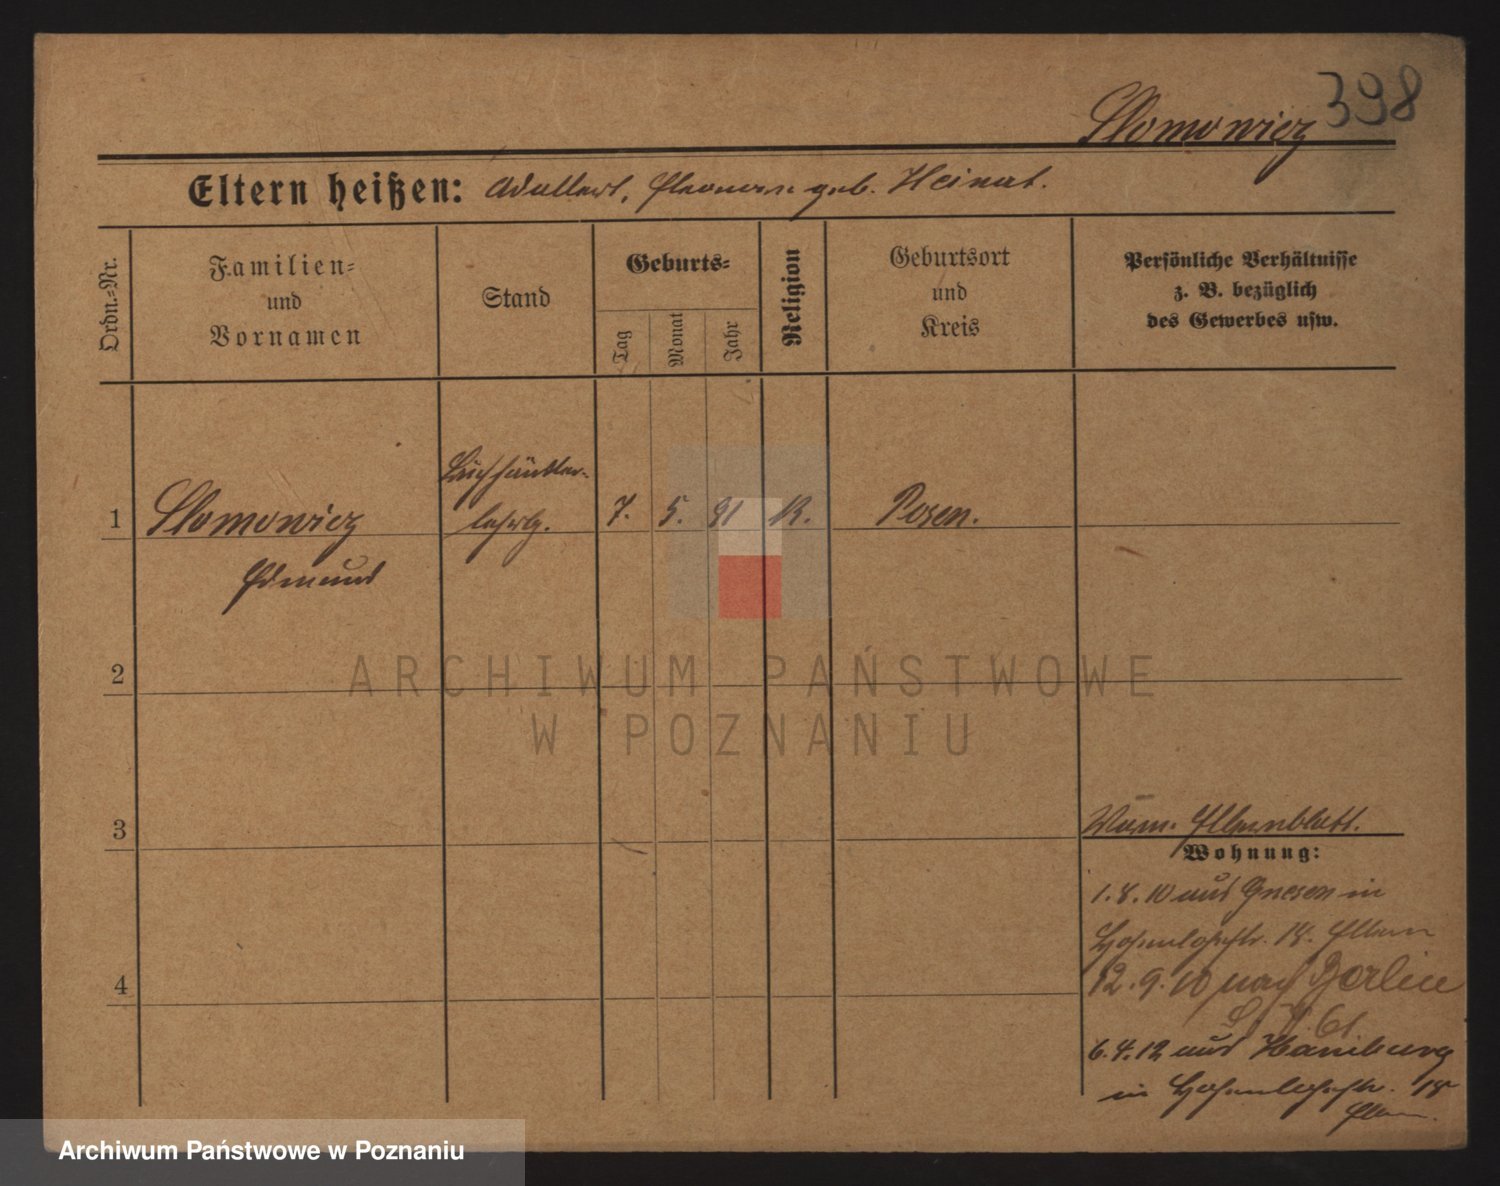 398
Slomowicz
Eltern heißen: Adalbert, Eleonore geb. Heinat.
Ordn.-Nr.
Familien-
und
Vornamen
Stand
Geburts-
Tag
Monat
Jahr
Religion
Geburtsort
und
Kreis
Persönliche Verhältnisse
z. B. bezüglich
des Gewerbes usw.
Buchhändler-
1 Slomowicz lehrlg. 7. 5. 91 K. Posen.
Edmund
2
ARCHIWUM PAŃSTWOWE
W POZNANIU
3
Elternblatt.
Wohnung:
1.8.10 aus Gnesen in
Hohenlohestr. 18. Eltern
4
12.9.10 nach Berlin
61
6.4.12 aus Hamburg
in Hohenlohestr. 18
Eltern.
Archiwum Państwowe w Poznaniu